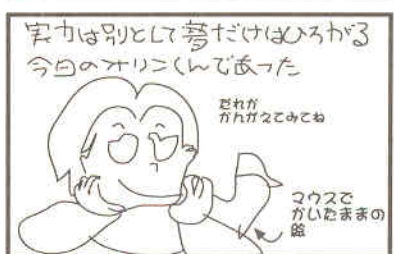 実力は別として夢だけはひろがる
今日のオリンくんであった
だれが
かんがえてみてね
マウスで
かいたままの
絵